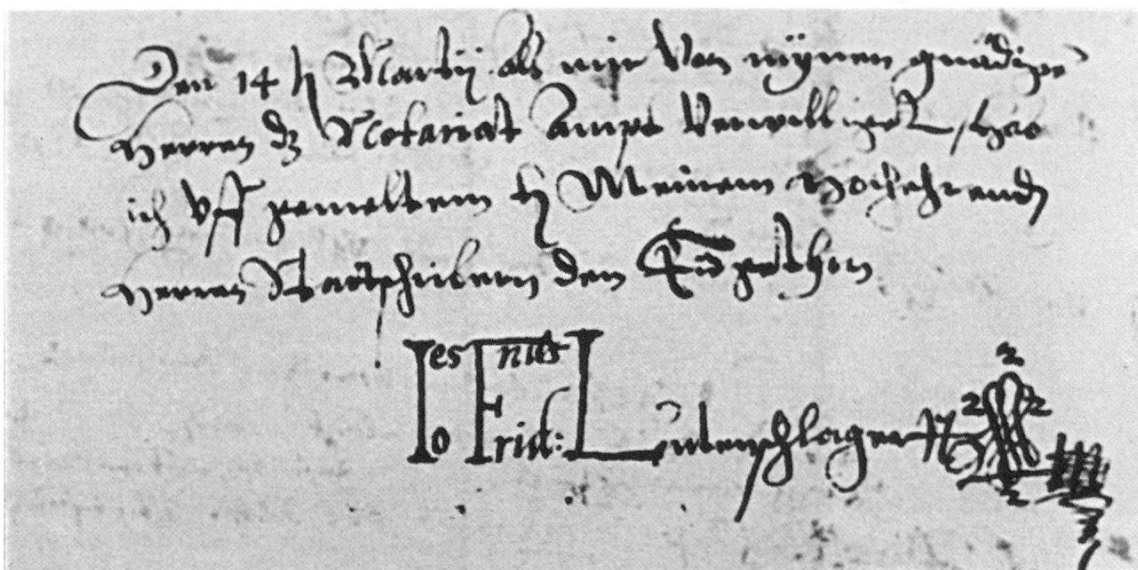 Den 14 Martij als mir von mynen gnädige
Herren dz Notariat Ampt verwilliget, hab
ich vff gemeltem Meinem Hochehrend
Herren Stattschribern den Eid gethon
Ies nus
Io Frid: Lutenschlager N
2
2 2
2